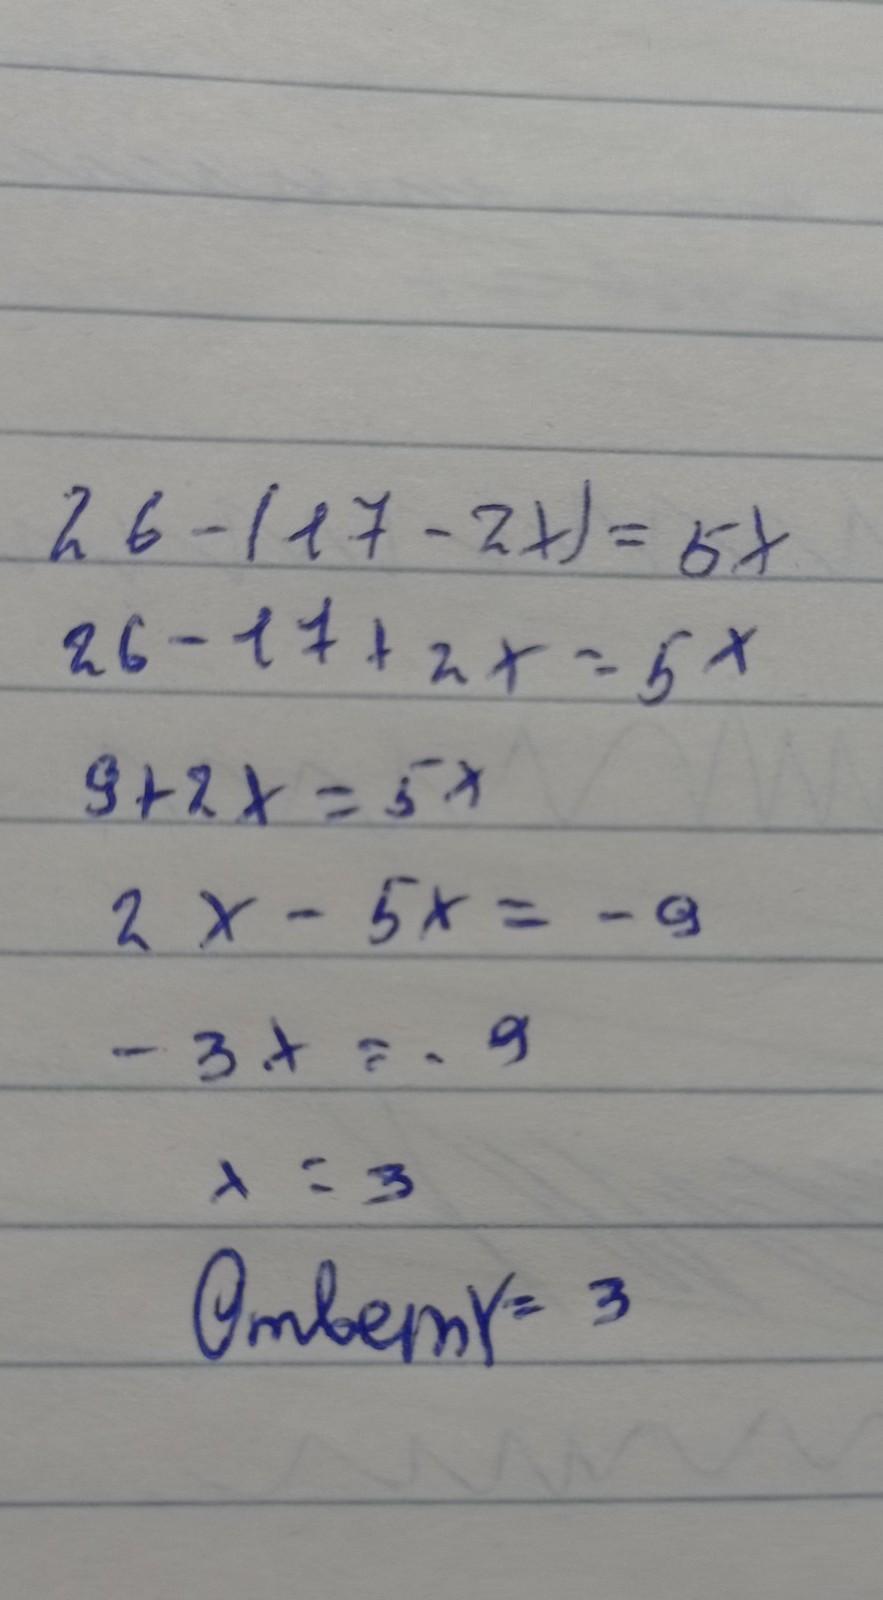 26 - (17 - 2x) = 5x
26 - 17 + 2x = 5x
9 + 2x = 5x
2x - 5x = -9
-3x = -9
x = 3
Ответ x = 3